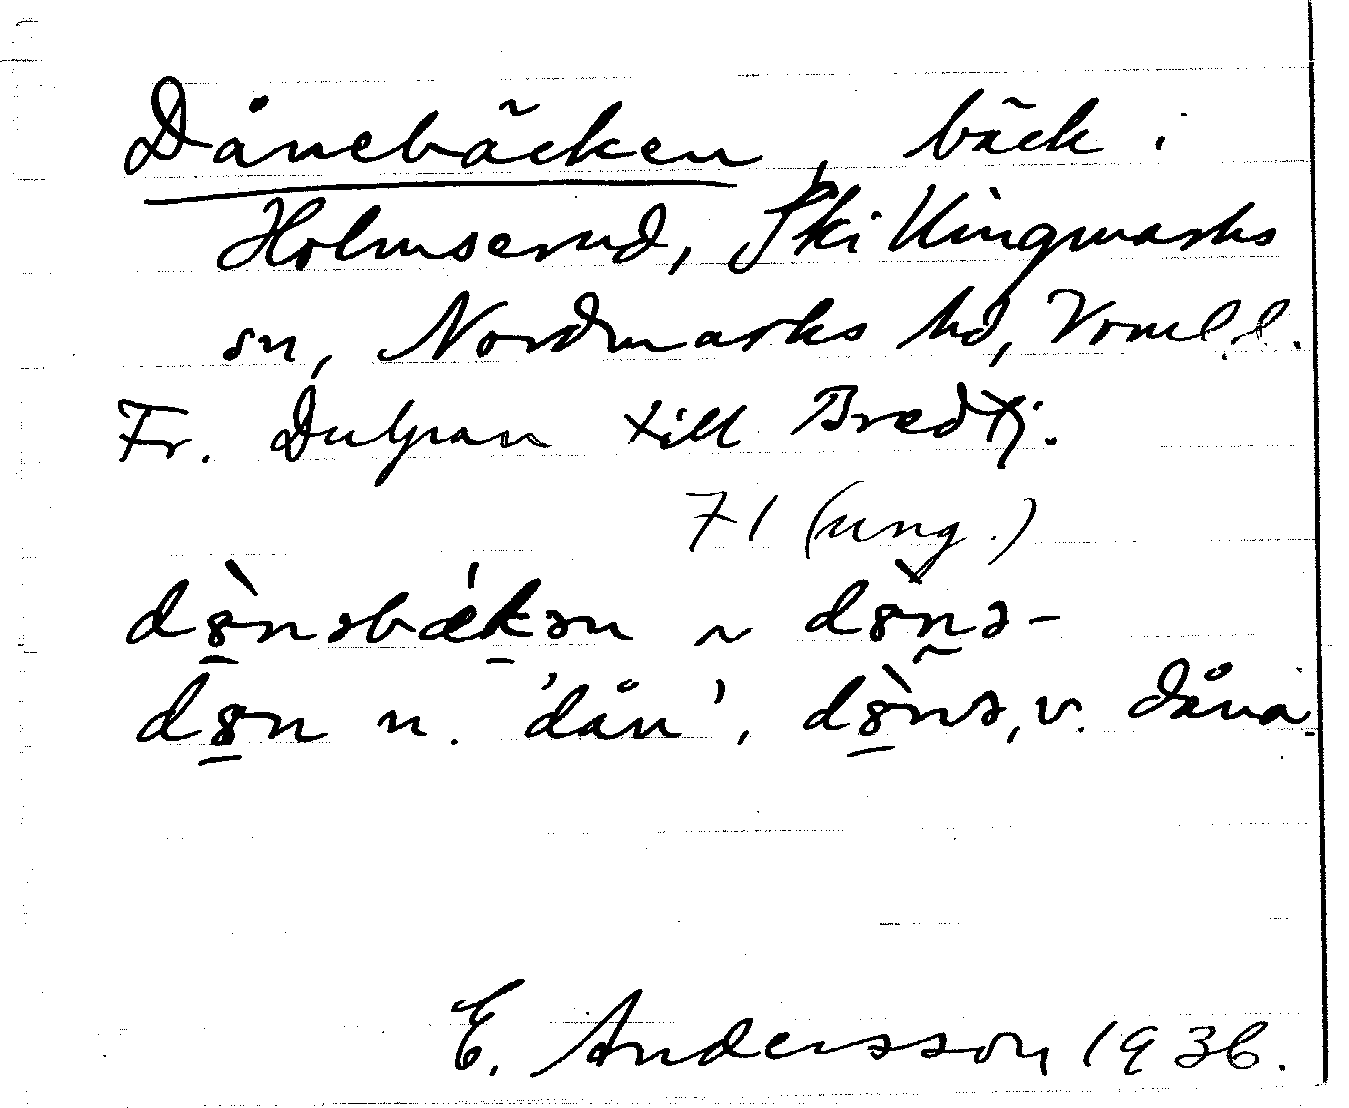 Dånebäcken, bäck i
Holmserud, Skillingmarks
sn, Nordmarks hd, Vrml.l.
Fr. Dulpan till Bredtj.
71 (ung.)
dò̱nəbækən ~ dònə-
do̱n n. 'dån', dò̱nə, v. dåna.
E. Andersson 1936.